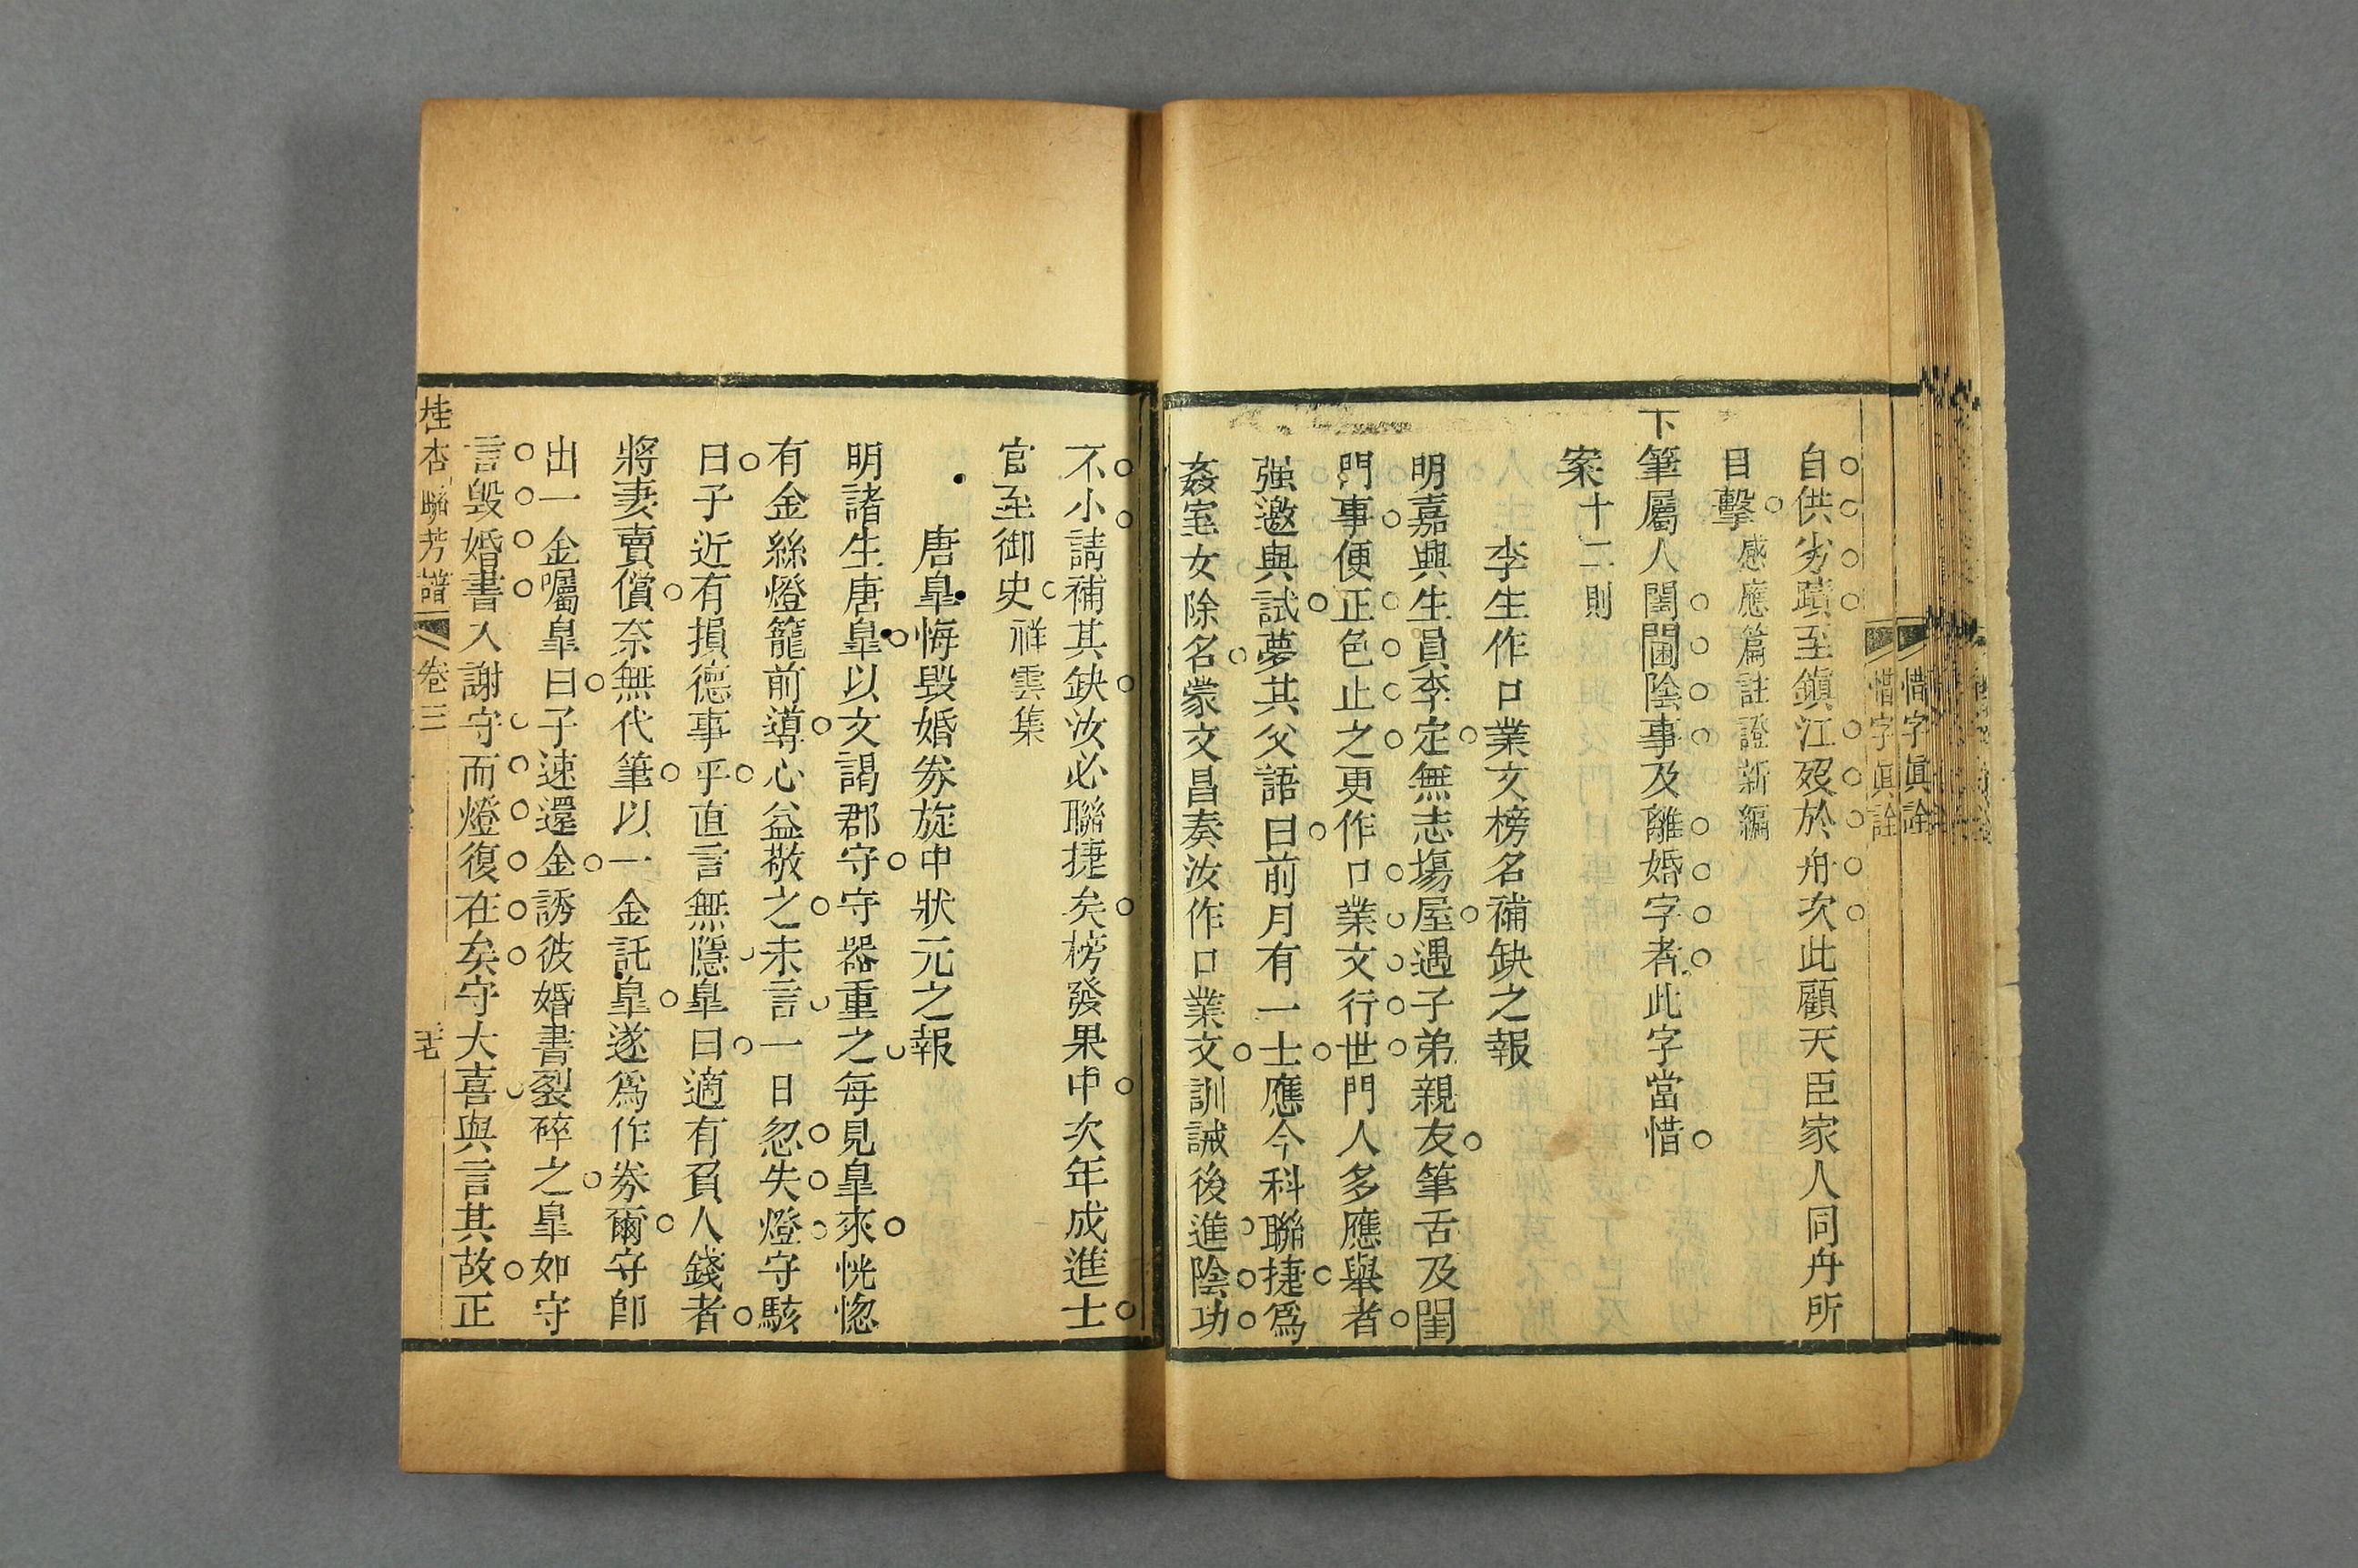 惜字眞詮
惜字眞詮
自供劣蹟至鎭江歿於舟次此顧天臣家人同舟所
目擊感應篇註證新編
下筆屬人閨閫陰事及離婚字者此字當惜
案十二則
李生作口業文榜名補缺之報
明嘉興生員李定無志塲屋遇子弟親友筆舌及閨
門事便正色止之更作口業文行世門人多應舉者
强邀與試夢其父語曰前月有一士應今科聯捷爲
姦室女除名蒙文昌奏汝作口業文訓誡後進陰功
不小請補其缺汝必聯捷矣榜發果中次年成進士
官至御史祥雲集
唐臯悔毁婚券旋中狀元之報
明諸生唐臯以文謁郡守守器重之每見臯來恍惚
有金絲燈籠前導心益敬之未言一日忽失燈守駭
曰子近有損德事乎直言無隱臯曰適有負人錢者
將妻賣償奈無代筆以一金託臯遂爲作券爾守卽
出一金囑臯曰子速還金誘彼婚書裂碎之臯如守
言毁婚書入謝守而燈復在矣守大喜與言其故正
桂杏聯芳譜 卷三